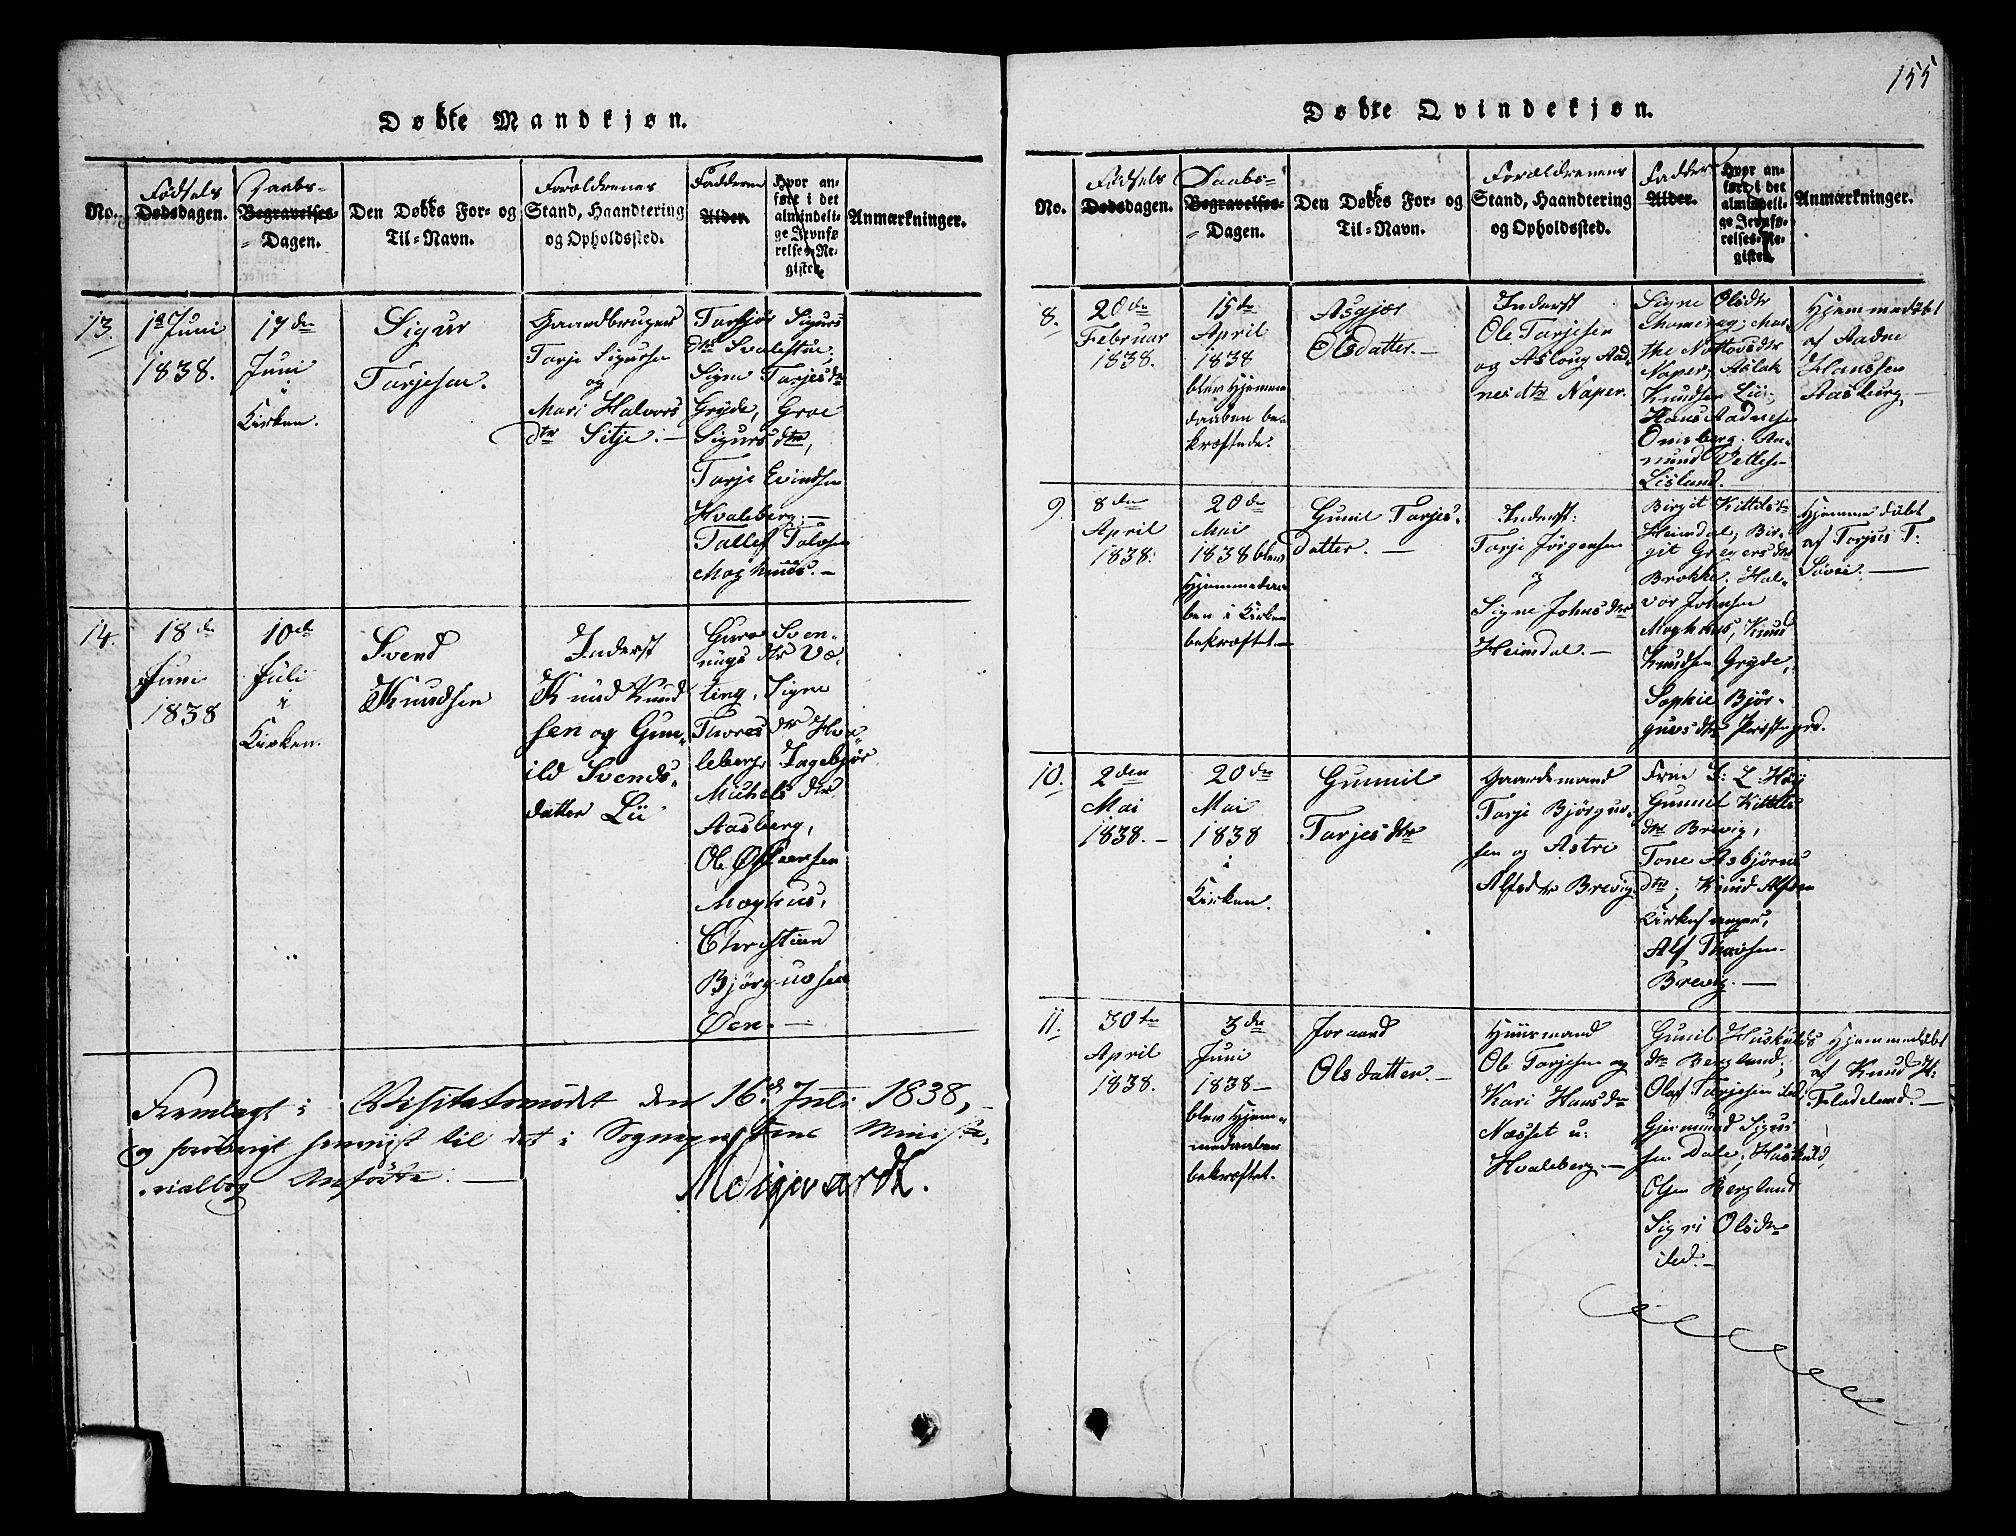 155
Døbte Mandkjøn.
No.
Fødsels
Dødsdagen.
Daabs-
Begravelses-
Dagen.
Den Døbtes For- og
Til-Navn.
Forældrenes
Stand, Haandtering
og Opholdssted.
Faddere
Alder.
Hvor an-
ført i det
almindeli-
ge Jevnfø
relses-Re-
gister.
Anmærkninger.
13.
1ste Juni
1838.
17de
Juni
i
Kirken.
Sigur
Tarjesen.
Gaardbruger
Tarje Sigursen
og
Mari Halvors
dtr Sitje. —
Tarbjør Sigurs
dtr Svalestue,
Signe Tarjesdtr
Gryde, Groe
Sigursdtr,
Tarje Evindsen
Hvaleberg. —
Tallef Talofsen
Moghuus. —
14.
18de
Juni
1838
10de
Juli
i
Kirken.
Svend
Knudsen
Inderst
Knud Knud
sen og Gun-
ild Svends-
datter Lii
Guro Sven-
nugs dtr Væ-
ting, Signe
Thores dtr Hva-
leberg, Ingebjør
Michels dtr
Aasberg,
Ole Øffteersen
Moghuus,
Christian
Bjørguvsen
Øen. —
Fremlagt i Visitatsmødet den 16de Juli 1838,
og forøvrigt henviist til det i Sognepræstens Ministe-
rialbog Anførte. —
M Sigvardt.
Døbte Qvindekjøn.
No.
Fødsels
Dødsdagen.
Daabs-
Begravelses-
Dagen.
Den Døbtes For- og
Til-Navn.
Forældrenes
Stand, Haandtering
og Opholdssted.
Faddere
Alder.
Hvor an-
ført i det
almindeli-
ge Jevnfø-
relses-Re-
gister.
Anmærkninger.
8.
20de
Februar
1838.
15de
April
1838
blev Hjemme
daaben be-
kræftede.
Asgjær
Olsdatter. —
Inderst
Ole Tarjesen
og Asloug Aad-
nesdtr Naper.
Signe Olsdtr
Thomtvag; Mar-
the Nottovsdtr
Naper; Aslak
Knudsen Lii;
Hans Aadnesen
Omsberg; An-
mund Vetlesen
Lisland.
Hjemmedøbt
af Aadne
Hanssen
Aasburg. —
9.
8de
April
1838.
20de
Mai
1838 blev
Hjemmedaa-
ben i Kirken
bekræftet —
Gunil Tarjes-
datter. —
Inderst:
Tarje Jørgensen
og
Signe Johnsdtr
Heimdal. —
Birgit Kittilsdtr
Heimdal; Bir-
git Gregersdtr
Brokke. Hal-
vor Johnsen
Moghuus, Knud
Knudsen Gryde,
Sophie Bjør-
guvsdtr Præstegrd.
Hjemmedøbt
af Torjus T:
Søvie. —
10.
2den
Mai
1838. —
20de
Mai
1838
i
Kirken.
Gunnil
Tarjesdtr
Gaardmand
Tarje Bjørguv-
sen og Astri
Alfsdtr Brevig.
Frue S: L. Høy
Gunnil Kittils
dtr Brevig,
Tone Asbjørns
dtr; Knud Alfsen
Kirkesanger,
Alf Thovsen
Brevig. —
11.
30te
April
1838.
3de
Juni
1838 —
blev Hjem-
medaaben
bekræftet.
Joraand
Olsdatter. —
Huusmand
Ole Tarjesen og
Kari Hansdtr
Næsset u:
Hvaleberg. —
Gunil Huskulds
dtr Bergland;
Olaf Tarjesen ibd;
Gjermund Sigur
sen Dale; Huskuld
Olsen Bergland
Sigri Olsdtr
ibd. —
Hjemmedøbt
af Knud H:
Fladeland. —